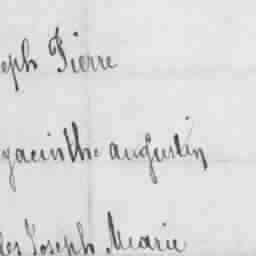 eph Pierre
yacinthe augustin
les Joseph Marie